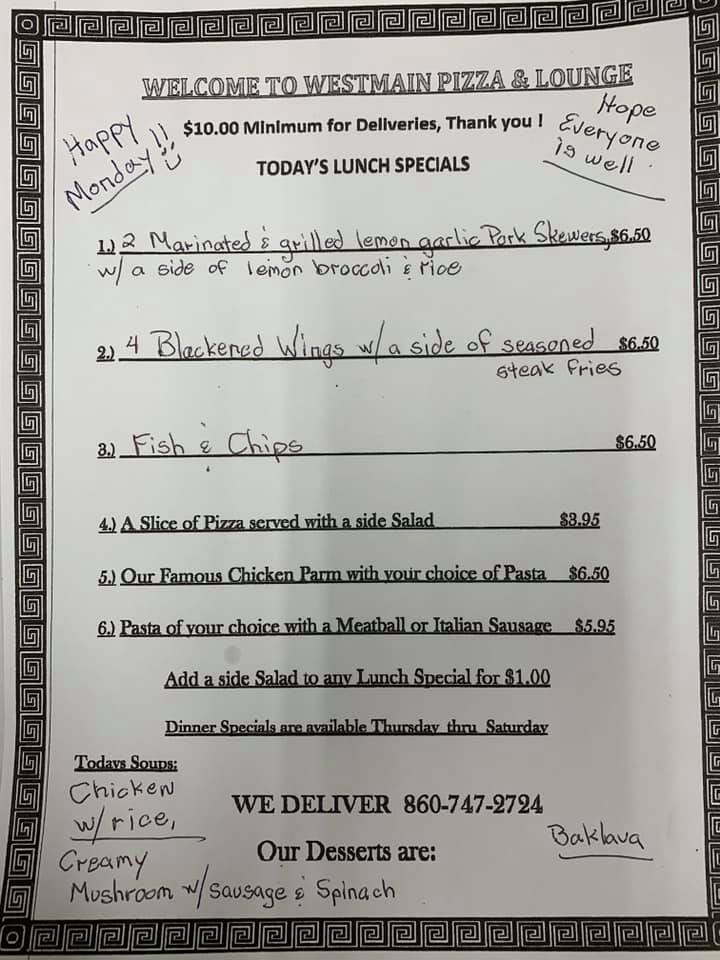 WELCOME TO WESTMAIN PIZZA & LOUNGE
Happy
Monday!!
$10.00 Minimum for Deliveries, Thank you !
Hope
Everyone
is well.
TODAY'S LUNCH SPECIALS
1.) 2 Marinated & grilled lemon garlic Pork Skewers, $6.50
w/ a side of lemon broccoli & rice
2.) 4 Blackened Wings w/ a side of seasoned $6.50
steak fries
3.) Fish & Chips $6.50
4.) A Slice of Pizza served with a side Salad $3.95
5.) Our Famous Chicken Parm with your choice of Pasta $6.50
6.) Pasta of your choice with a Meatball or Italian Sausage $5.95
Add a side Salad to any Lunch Special for $1.00
Dinner Specials are available Thursday thru Saturday
Todays Soups:
Chicken
w/ rice,
Creamy
Mushroom w/ sausage & Spinach
WE DELIVER 860-747-2724
Our Desserts are:
Baklava